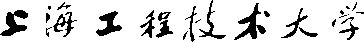 上海工程技术大学